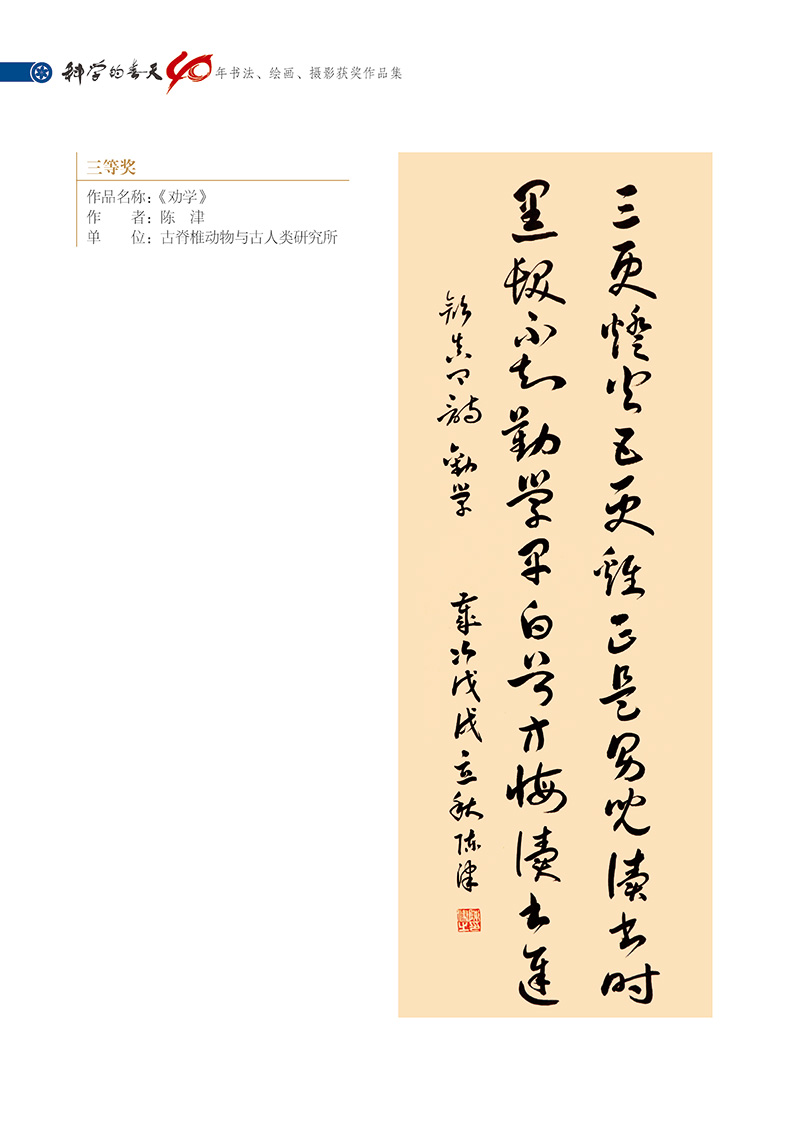 科学的春天40年书法、绘画、摄影获奖作品集
三等奖
作品名称：《劝学》
作　　者：陈　津
单　　位：古脊椎动物与古人类研究所
三更燈火五更雞正是男児讀书时
黑髮不知勤学早白首方悔讀书遲
顔真卿詩 勸学 歲次戊戌立秋陈津